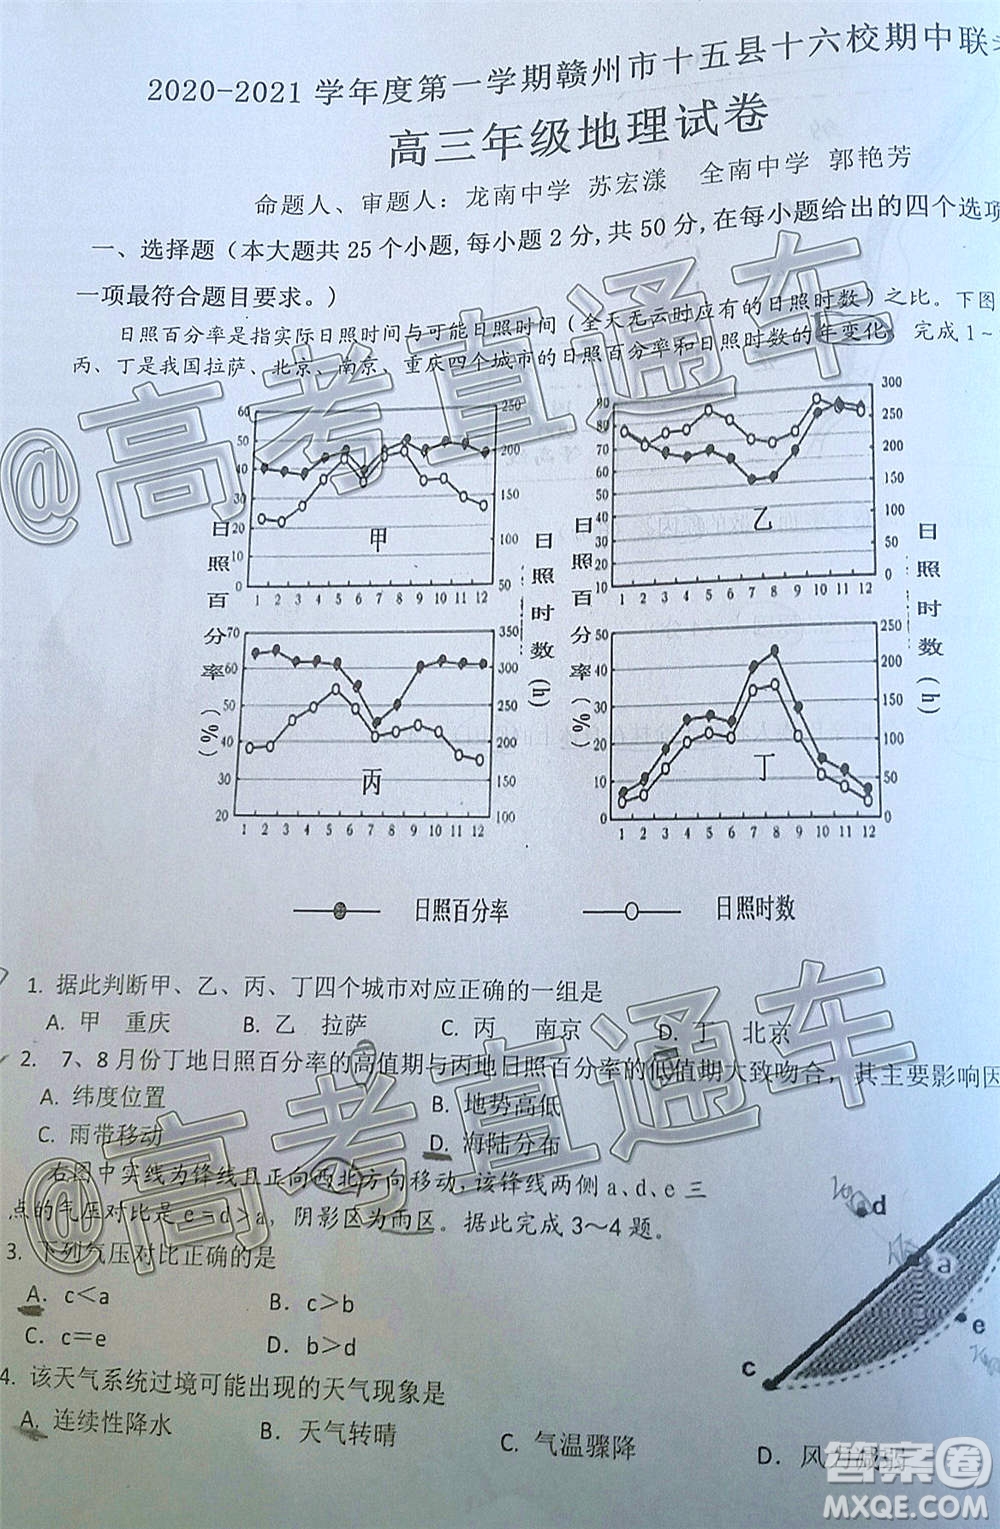 2020-2021 学年度第一学期赣州市十五县十六校期中联
高三年级地理试卷
命题人、审题人：龙南中学 苏宏漾 全南中学 郭艳芳
一、选择题（本大题共 25 个小题，每小题 2 分，共 50 分，在每小题给出的四个选项
一项最符合题目要求。）
日照百分率是指实际日照时间与可能日照时间（全天无云时应有的日照时数）之比。下图
丙、丁是我国拉萨、北京、南京、重庆四个城市的日照百分率和日照时数的年变化。完成 1～
60 50 40 30 20 10 0
250 200 150 100 50
甲
1 2 3 4 5 6 7 8 9 10 11 12
90 80 70 60 50 40 30 20 10
300 250 200 150 100 50 0
乙
1 2 3 4 5 6 7 8 9 10 11 12
日照百分率（%）
日照时数(h)
日照百分率（%）
日照时数(h)
70 60 50 40 30 20
350 300 250 200 150 100
丙
1 2 3 4 5 6 7 8 9 10 11 12
50 40 30 20 10 0
250 200 150 100 50 0
丁
1 2 3 4 5 6 7 8 9 10 11 12
日照百分率 日照时数
1. 据此判断甲、乙、丙、丁四个城市对应正确的一组是
A. 甲 重庆 B. 乙 拉萨 C. 丙 南京 D. 丁 北京
2. 7、8 月份丁地日照百分率的高值期与丙地日照百分率的低值期大致吻合，其主要影响因
A. 纬度位置 B. 地势高低
C. 雨带移动 D. 海陆分布
右图中实线为锋线且正向西北方向移动，该锋线两侧 a、d、e 三
点的气压对比是 e＝d＞a，阴影区为雨区。据此完成 3～4 题。
d
a
e
c
3. 下列气压对比正确的是
A. c＜a B. c＞b
C. c＝e D. b＞d
4. 该天气系统过境可能出现的天气现象是
A. 连续性降水 B. 天气转晴 C. 气温骤降 D. 风力减弱
@高考直通车
@高考直通车
答案圈
MXQE.COM